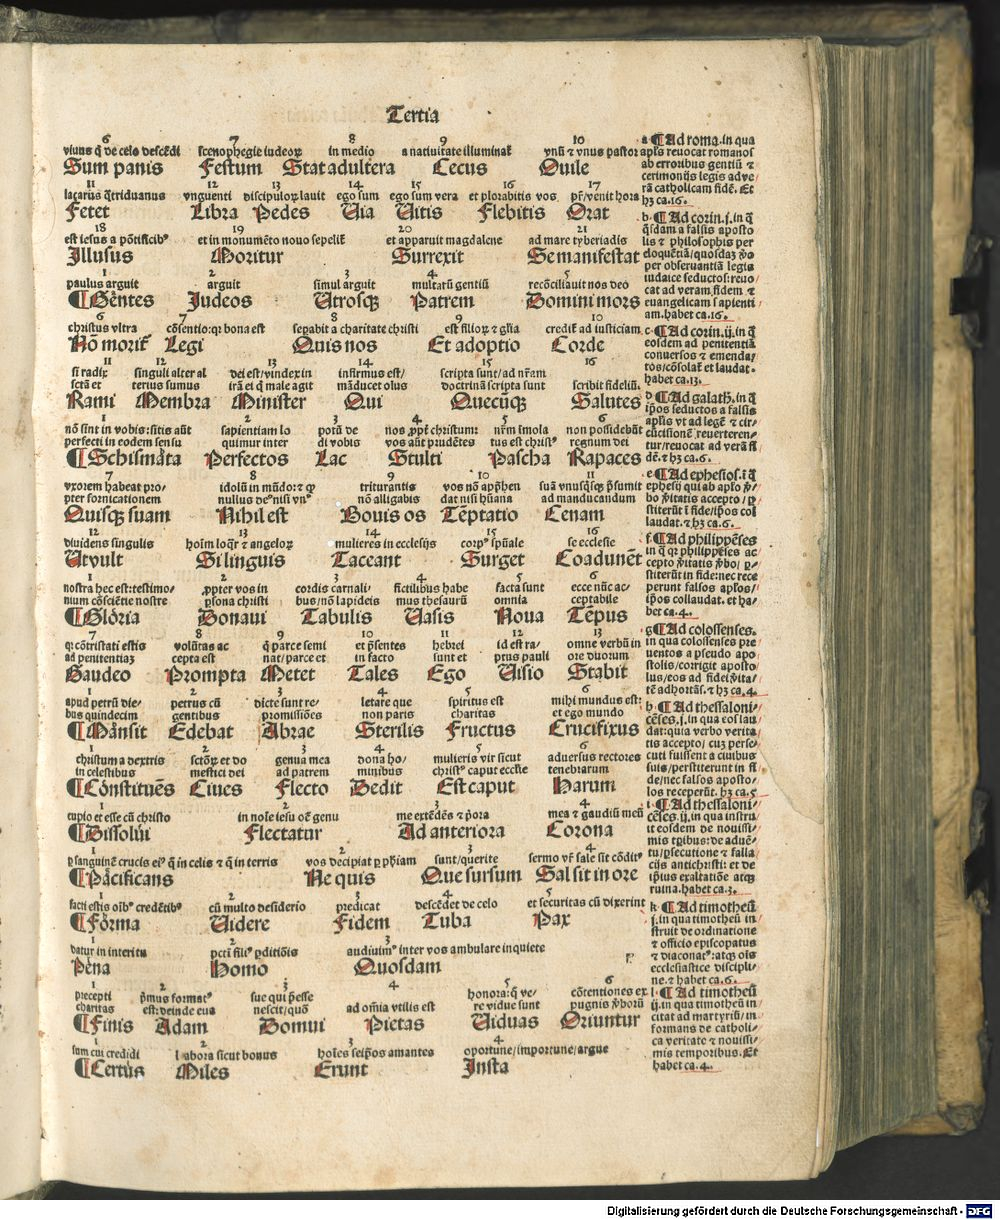 Tertia
6 7 8 9 10
viuus q̄ de celo descēdi scenophegie iudeoꝝ in medio a natiuitate illuminat̄ vnū ⁊ vnus pastor
Sum panis Festum Stat adultera Cecus Ouile
11 12 13 14 15 16 17
lazarus q̄triduanus vnguenti discipuloꝝ lauit ego sum ego sum vera et plorabitis vos pr̄/venit hora
Fetet Libra Pedes Uia Uitis Flebitis Orat
18 19 20 21
est iesus a pōtificibꝰ et in monumēto nouo sepelit̄ et apparuit magdalene ad mare tyberiadis
Illusus Moritur Surrexit Se manifestat
1 2 3 4 5
paulus arguit arguit simul arguit multarū gentiū recōciliauit nos deo
¶ Gentes Judeos Utrosqꝫ Patrem Domini mors
6 7 8 9 10
christus vltra cōsentio: qꝛ bona est sepabit a charitate christi est filioꝝ ⁊ gl̄ia credit̄ ad iusticiam
Nō morit̄ Legi Quis nos Et adoptio Corde
11 12 13 14 15 16
si radix singuli alter al dei est/vindex in infirmus est/ scripta sunt/ad nr̄am
sctā et terius sumus irā ei q̄ male agit māducet olus doctrinā scripta sunt scribit fideliū.
Rami Membra Minister Qui Quecūqꝫ Salutes
1 2 3 4 5 6
nō sint in vobis: sitis aūt sapientiam lo potū de nos ꝓpt̄ christum: nr̄m īmola non possidebūt
perfecti in eodem sensu quimur inter di vobis vos aūt prudētes tus est christꝰ regnum dei
¶ Schismata Perfectos Lac Stulti Pascha Rapaces
7 8 9 10 11
vxorem habeat pro/ idolū in mūdo: ⁊ qꝫ triturantis vos nō app̄hen suā vnusqꝫ p̄sumit
pter fornicationem nullus deꝰ nisi vnꝰ nō alligabis dat nisi hūana ad manducandum
Quisqꝫ suam Nihil est Bouis os Tēptatio Cenam
12 13 14 15 16
diuidens singulis hoīm loqr̄ ⁊ angeloꝝ mulieres in ecclesijs corpꝰ spūale se ecclesie
Ut vult Si linguis Taceant Surget Coadunēt
1 2 3 4 5 6
nostra hec est: testimo/ ꝓpter vos in cordis carnali/ fictilibus habe facta sunt ecce nūc ac/
nium cōsciētie nostre ꝑsona christi bus/nō lapideis mus thesaurū omnia ceptabile
¶ Gloria Donaui Tabulis Uasis Noua Tēpus
7 8 9 10 11 12 13
qꝛ cōtristati estis volūtas ac q̄ parce semi et p̄sentes hebrei id est ra/ omne verbū in
ad penitentiaꝫ cepta est nat/parce et in facto sunt et ptus pauli ore duorum
Gaudeo Prompta Metet Tales Ego Uisio Stabit
1 2 3 4 5 6
apud petrū die/ petrus cū dicte sunt re/ letare que spiritus est mihi mundus est:
bus quindecim gentibus promissiōes non paris charitas et ego mundo
¶ Mansit Edebat Abrae Sterilis Fructus Crucifixus
1 2 3 4 5 6
christum a dextris sctōꝝ et do genua mea dona ho/ mulieris vir sicut aduersus rectores
in celestibus mestici dei ad patrem minibus christꝰ caput ecclie tenebrarum
¶ Cōnstituēs Ciues Flecto Dedit Est caput Harum
1 2 3 4
cupio et esse cū christo in noīe iesu oē genu me extēdēs ⁊ p̄ora mea ⁊ gaudiū meū
¶ Dissolui Flectatur Ad anteriora Corona
1 2 3 4
ꝑ sanguinē crucis eiꝰ q̄ in celis ⁊ q̄ in terris vos decipiat ꝑ ph̄iam sunt/querite sermo vr̄ sale sit cōditꝰ
¶ Pacificans Ne quis Que sursum Sal sit in ore
1 2 3 4 5
facti estis oībꝰ credētibꝰ cū multo desiderio predicat descēdet de celo et securitas cū dixerint
¶ Forma Uidere Fidem Tuba Pax
1 2 3
datur in interitu pctī filiꝰ ꝑditiōis audiuimꝰ inter vos ambulare inquiete
Pena Homo Quosdam
1 2 3 4 5 6
precepti p̄mus formatꝰ sue qui p̄esse honora: q̄ ve/ cōtentiones ex
charitas est: deinde eua nescit/quō ad om̄ia vtilis est re vidue sunt pugnis v̄borū
¶ Finis Adam Domui Pietas Uiduas Oriuntur
1 2 3 4
sum cui credidi labora sicut bonus hoīes seipōs amantes oportune/importune/argue
¶ Certus Miles Erunt Insta
a ¶ Ad roma. in qua
apl̄s reuocat romanos
ab erroribus gentiū ⁊
cerimonijs legis adve/
rā catholicam fidē. Et
hꝫ ca. 16.
b ¶ Ad corin. j. in q̄
q̄sdam a falsis aposto
lis ⁊ philosophis per
eloquētiā/quosdaꝫ v̄o
per obseruantiā legis
iudaice seductos: reuo/
cat ad veram fidem ⁊
euangelicam sapienti/
am. habet ca. 16.
c ¶ Ad corin. ij. in q̄
eosdem ad penitentiā
conuersos ⁊ emenda/
tos/cōsolat̄ et laudat.
habet ca. 13.
d ¶ Ad galath. in q̄
ip̄os seductos a falsis
apl̄is vt ad legē ⁊ cir/
cūcisionē reuerteren/
tur/reuocat ad verā fi
dē. ⁊ hꝫ ca. 6.
e ¶ Ad ephesios. ī q̄
ephesij qui ab apl̄o v̄/
bo v̄itatis accepto/ꝑ
stiterūt ī fide/ip̄os col
laudat. ⁊ hꝫ ca. 6.
f ¶ Ad philippēses
in q̄ qꝛ philippēses ac/
cepto v̄itatis v̄bo/ꝑ/
stiterūt in fide: nec rece
perunt falsos apl̄os/
ip̄os collaudat. et ha/
bet ca. 4.
g ¶ Ad colossenses.
in qua colossenses pre
uentos a pseudo apo
stolis/corrigit aposto/
lus/eos ad fidei v̄ita/
tē adhortās. ⁊ hꝫ ca. 4.
h ¶ Ad thessaloni/
cēses. j. in qua eos lau
dat: quia verbo verita
tis accepto/cuꝫ perse/
cuti fuissent a ciuibus
suis/perstiterunt in fi
de/nec falsos aposto/
los receperūt. hꝫ ca. 5
i ¶ Ad thessaloni/
cēses. ij. in qua instru/
it eosdem de nouissi/
mis tp̄ibus: de aduē/
tu/ꝑsecutione ⁊ falla
cijs antichristi: et de
ip̄ius exaltatiōe atqꝫ
ruina. habet ca. 3.
k ¶ Ad timotheū
j. in qua timotheū in/
struit de ordinatione
⁊ officio episcopatus
⁊ diaconatꝰ: atqꝫ oīs
ecclesiastice discipli/
ne. ⁊ habet ca. 6.
l ¶ Ad timotheū
ij. in qua timotheū in/
citat ad martyriū/in
formans de catholi/
ca veritate ⁊ nouissi/
mis temporibus. Et
habet ca. 4.
Digitalisierung gefördert durch die Deutsche Forschungsgemeinschaft - DFG